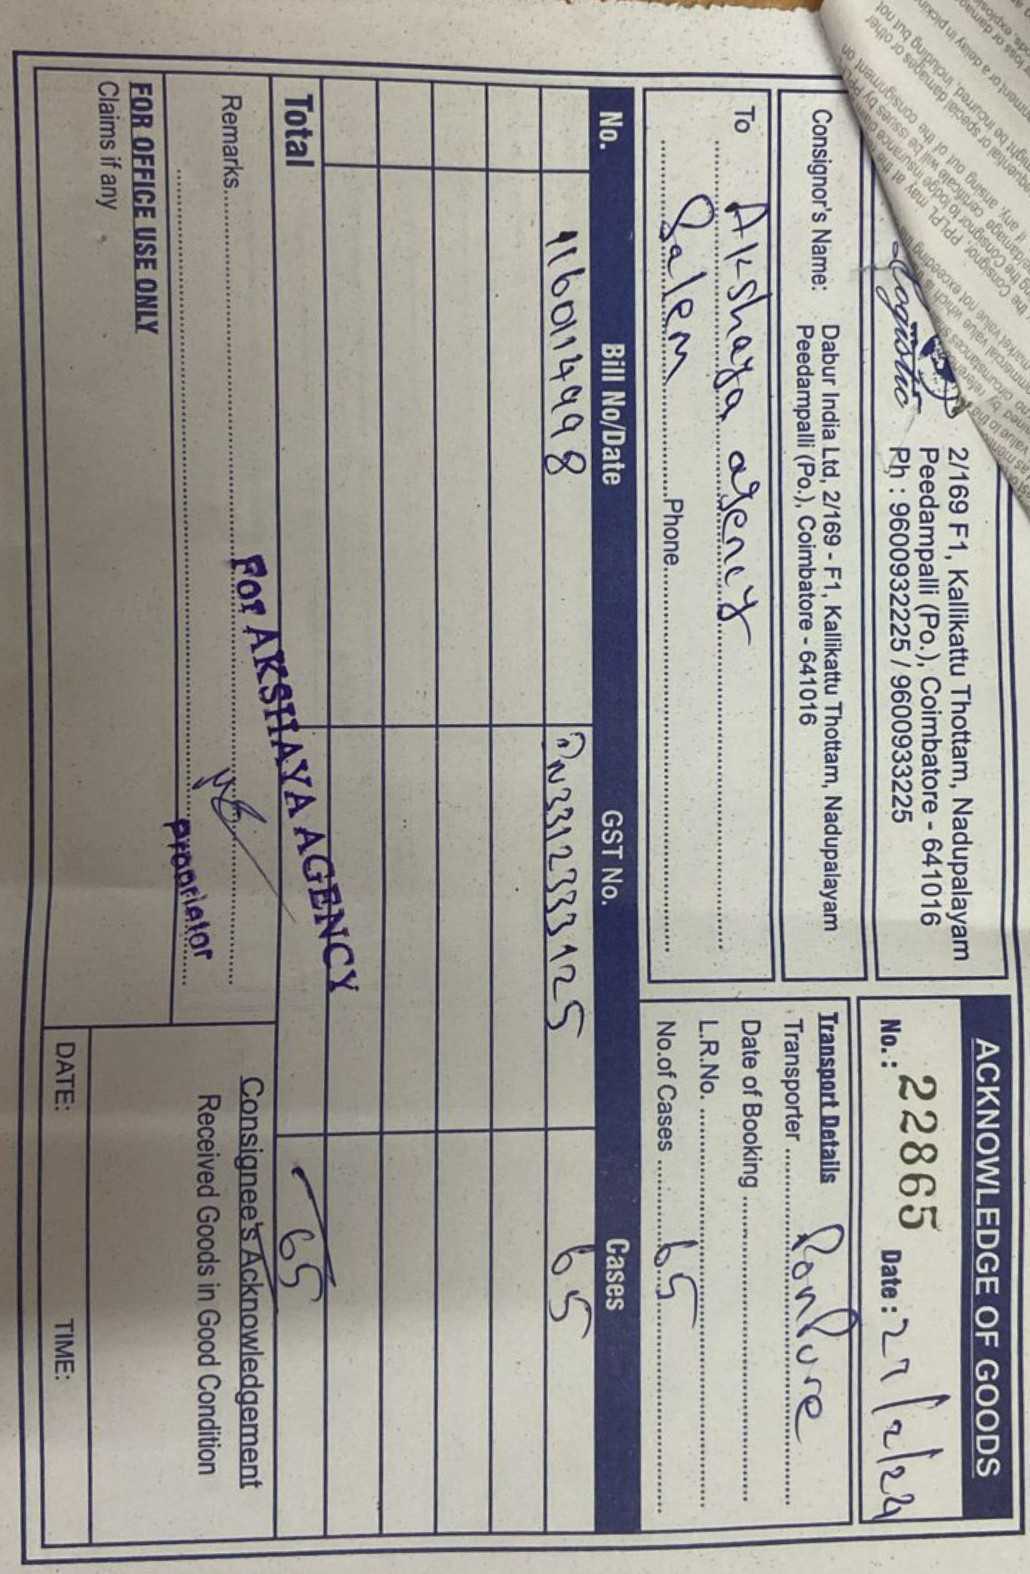 Logistic
2/169 F1, Kallikattu Thottam, Nadupalayam
Peedampalli (Po.), Coimbatore - 641016
Ph : 9600932225 / 9600933225
ACKNOWLEDGE OF GOODS
No. : 22865 Date : 27/2/24
Consignor's Name: Dabur India Ltd, 2/169 - F1, Kallikattu Thottam, Nadupalayam
Peedampalli (Po.), Coimbatore - 641016
To Akshaya agency
Salem Phone
Transport Details
Transporter
Date of Booking
L.R.No.
No.of Cases 65
No. Bill No/Date GST No. Cases
1160114998 65
Total 65
Remarks
For AKSHAYA AGENCY
Proprietor
Consignee's Acknowledgement
Received Goods in Good Condition
FOR OFFICE USE ONLY
Claims if any
DATE: TIME: